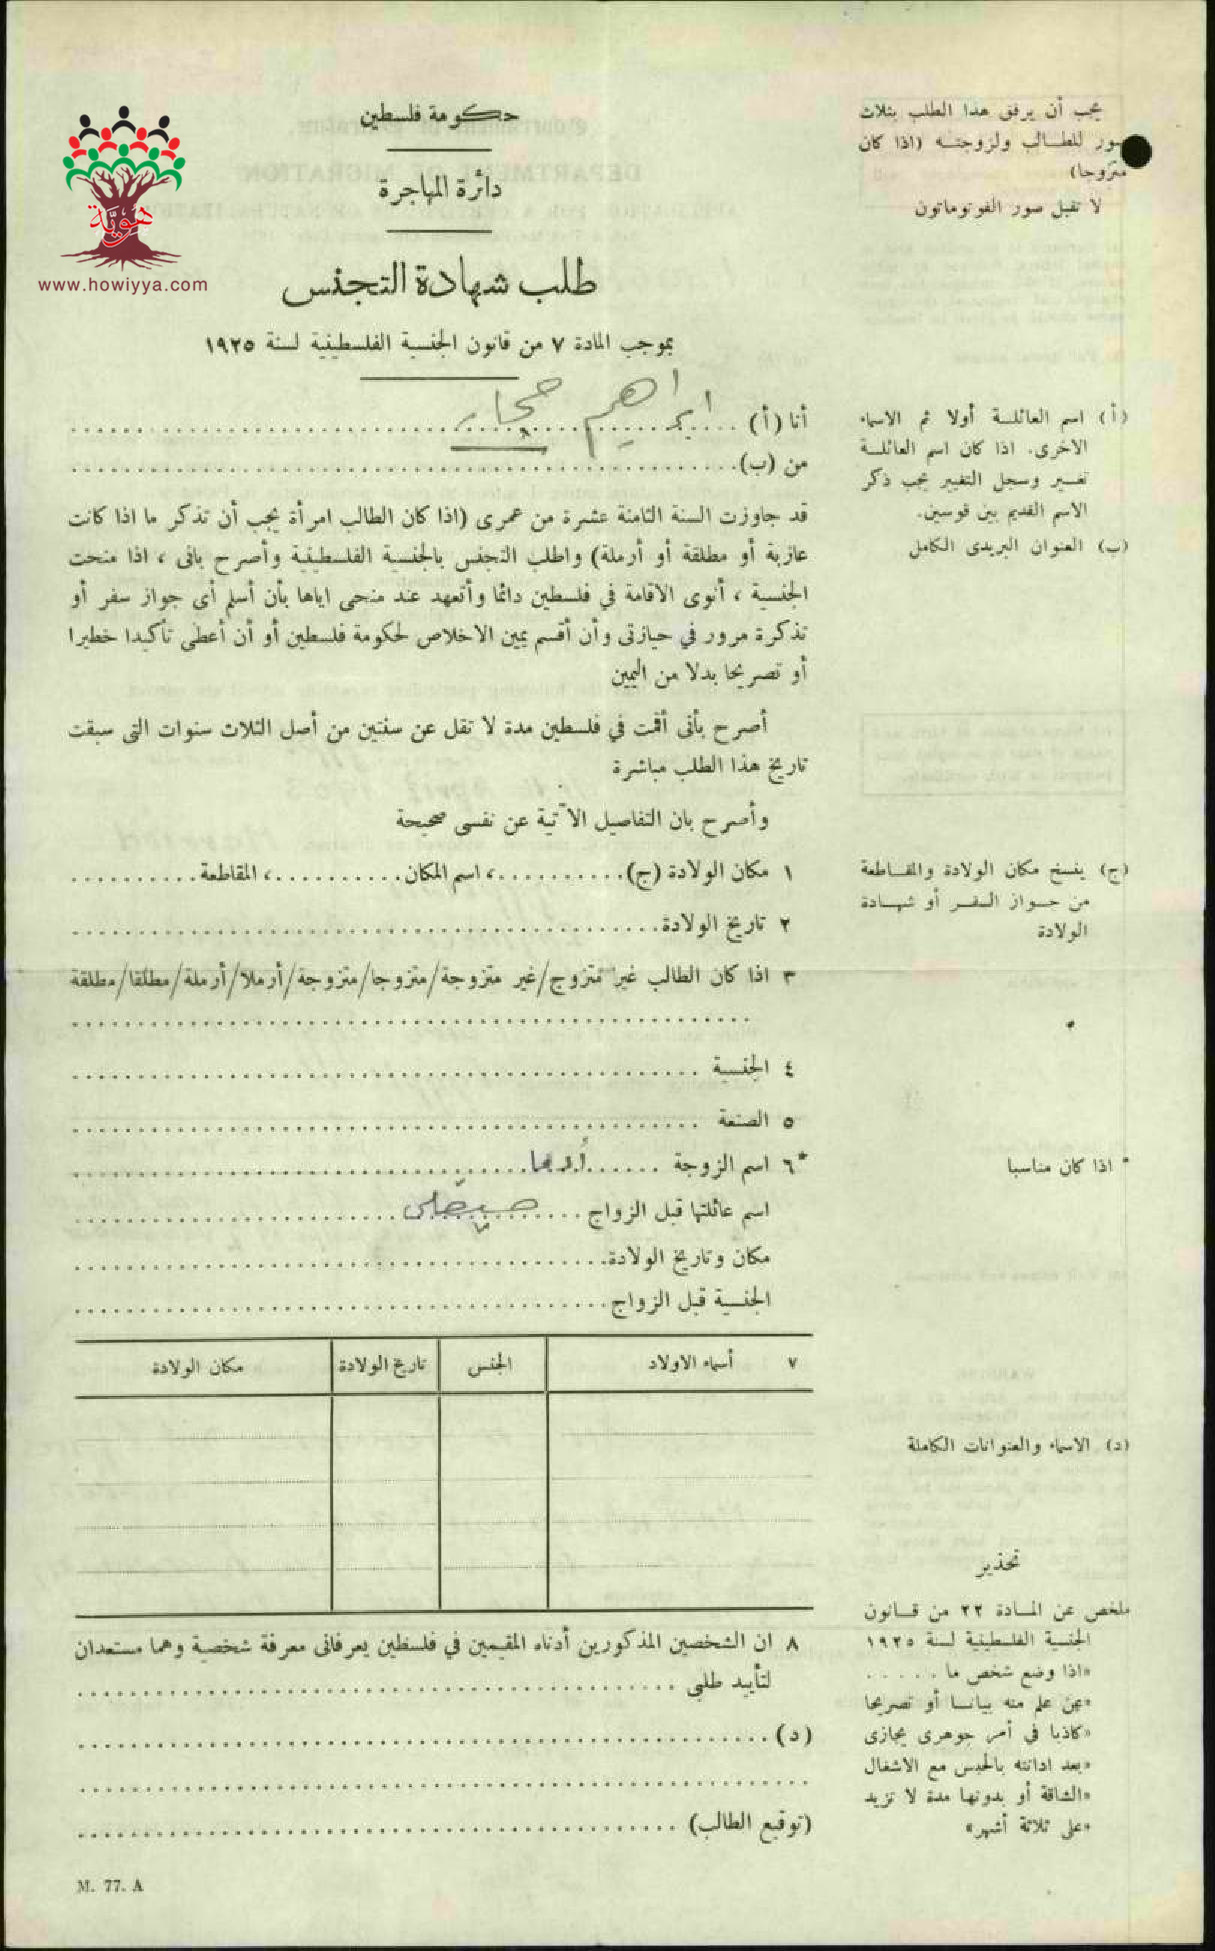 حكومة فلسطين
دائرة المهاجرة
هوية
www.howiyya.com
طلب شهادة التجنس
بموجب المادة ٧ من قانون الجنسية الفلسطينية لسنة ١٩٢٥
يجب أن يرفق هذا الطلب بثلاث
صور للطالب ولزوجته (اذا كان
متزوجا)
لا تقبل صور الفوتوماتون
أنا (أ) ابراهيم حجار
من (ب)
قد جاوزت السنة الثامنة عشرة من عمرى (اذا كان الطالب امرأة يجب أن تذكر ما اذا كانت
عازبة أو مطلقة أو أرملة) واطلب التجنس بالجنسية الفلسطينية وأصرح بانى ، اذا منحت
الجنسية ، أنوى الاقامة في فلسطين دائما وأتعهد عند منحى اياها بأن أسلم أى جواز سفر أو
تذكرة مرور في حيازتى وأن أقسم يمين الاخلاص لحكومة فلسطين أو أن أعطى تأكيدا خطيرا
أو تصريحا بدلا من اليمين
أصرح بأنى أقمت في فلسطين مدة لا تقل عن سنتين من أصل الثلاث سنوات التى سبقت
تاريخ هذا الطلب مباشرة
وأصرح بان التفاصيل الآتية عن نفسى صحيحة
(أ) اسم العائلة أولا ثم الاسماء
الاخرى. اذا كان اسم العائلة
تغير وسجل التغيير يجب ذكر
الاسم القديم بين قوسين.
(ب) العنوان البريدى الكامل
١ مكان الولادة (ج) ، اسم المكان ، المقاطعة
٢ تاريخ الولادة
(ج) ينسخ مكان الولادة والمقاطعة
من جواز السفر أو شهادة
الولادة
٣ اذا كان الطالب غير متزوج/غير متزوجة/متزوجا/متزوجة/أرملا/أرملة/مطلقا/مطلقة
٤ الجنسية
٥ الصنعة
*٦ اسم الزوجة
* اذا كان مناسبا
اسم عائلتها قبل الزواج
مكان وتاريخ الولادة
الجنسية قبل الزواج
٧ أسماء الاولاد الجنس تاريخ الولادة مكان الولادة
٨ ان الشخصين المذكورين أدناه المقيمين في فلسطين يعرفانى معرفة شخصية وهما مستعدان
لتأييد طلبى
(د)
(توقيع الطالب)
(د) الاسماء والعنوانات الكاملة
تحذير
ملخص عن المادة ٢٢ من قانون
الجنسية الفلسطينية لسنة ١٩٢٥
«اذا وضع شخص ما . . . . .
«عن علم منه بيانا أو تصريحا
«كاذبا في أمر جوهرى يجازى
«بعد ادانته بالحبس مع الاشغال
«الشاقة أو بدونها مدة لا تزيد
«على ثلاثة أشهر»
M. 77. A